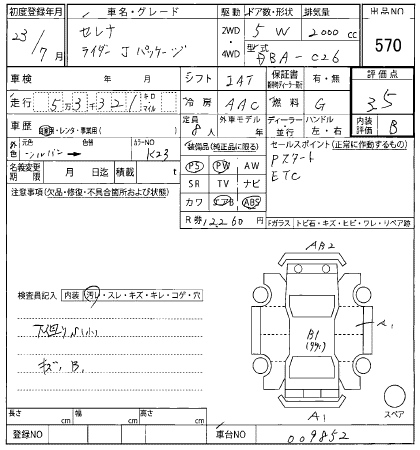 初度登録年月 車名・グレード 駆動 ドア数・形状 排気量 出品NO
23 / 7月
セレナ
ライダー Jパッケージ
2WD ・ 4WD
5 W 2000 cc
型式 DBA-C26
570
車検 年 月 シフト IAT 保証書 有・無 評価点
走行 53321 キロ マイル 冷房 AAC 燃料 G 3.5
車歴 自家用・レンタ・事業用( ) 定員 8人 外車モデル 年 ディーラー・並行 ハンドル 左・右 内装評価 B
外色 元色 シルバー 色替 カラーNO K23
装備品(純正品に限る) セールスポイント(正常に作動するもの)
名義変更期限 月 日迄 積載 t
PS PW AW
SR TV ナビ
カワ エアB ABS
Pスタート
ETC
注意事項(欠品・修復・不具合箇所および状態)
R券 12260円 Fガラス トビ石・キズ・ヒビ・ワレ・リペア跡
検査員記入 内装 汚レ・スレ・キズ・キレ・コゲ・穴
下廻り小
キズ、B,
AB2
B1
A1
A1
スペア
長さ cm 幅 cm 高さ cm
登録NO 車台NO 009852